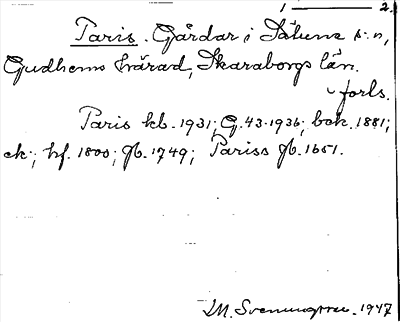 1 — 2.
Paris. Gårdar i Sätuna s:n,
Gudhems härad, Skaraborgs län.
forts.
Paris kb. 1931; G. 43. 1936; bok. 1881;
ek.; hf. 1800; gb. 1749; Pariss gb. 1651.
M. Svenungsson. 1947